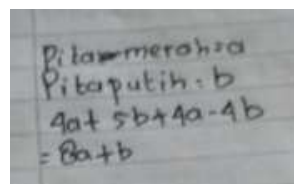 Pita merah = a
Pita putih = b
4a + 5b + 4a - 4b
= 8a + b